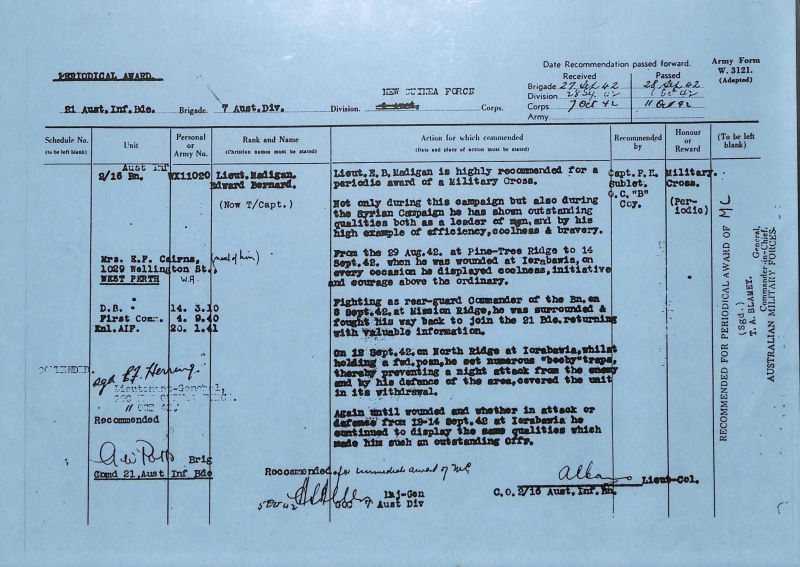 PERIODICAL AWARD
NEW GUINEA FORCE
Date Recommendation passed forward.
Received Passed
Army Form
W. 3121.
(Adapted)
Brigade 27 Sep 42 28 Sep 42
Division
Corps 7 Oct 42 11 Oct 42
Army
21 Aust.Inf.Bde. Brigade. 7 Aust.Div. Division. Corps.
Schedule No.
(to be left blank)
Unit
Personal
or
Army No.
Rank and Name
(Christian names must be stated)
Action for which commended
(Date and place of action must be stated)
Recommended
by
Honour
or
Reward
(To be left
blank)
Aust Inf
2/16 Bn.
WX11020
Lieut.Madigan.
Edward Bernard.
(Now T/Capt.)
Mrs. E.F. Cairns,
1029 Wellington St.,
WEST PERTH W.A.
D.B. 14. 3.10
First Comm. 4. 9.40
Enl.AIF. 20. 1.41
Lieut. E.B.Madigan is highly recommended for a
periodic award of a Military Cross.
Not only during this campaign but also during
the Syrian Campaign he has shown outstanding
qualities both as a leader of men, and by his
high example of efficiency, coolness & bravery.
From the 29 Aug.42. at Pine-Tree Ridge to 14
Sept.42. when he was wounded at Iorabawia, on
every occasion he displayed coolness, initiative
and courage above the ordinary.
Fighting as rear-guard Commander of the Bn. on
8 Sept.42. at Mission Ridge, he was surrounded &
fought his way back to join the 21 Bde. returning
with valuable information.
On 12 Sept.42. on North Ridge at Iorabawia, whilst
holding a fwd. posn, he set numerous "booby" traps,
thereby preventing a night attack from the enemy
and by his defence of the area, covered the unit
in its withdrawal.
Again until wounded and whether in attack or
defence from 12-14 Sept.42 at Iorabawia he
continued to display the same qualities which
made him such an outstanding Offr.
Capt. F.E.
Sublet.
O.C. "B"
Coy.
Military
Cross.
(Per-
iodic)
RECOMMENDED FOR PERIODICAL AWARD OF MC
(Sgd.)
T. A. BLAMEY. General,
Commander-in-Chief,
AUSTRALIAN MILITARY FORCES.
sgd E F Herring
Lieutenant-General,
11 OCT 42
Recommended
A W Potts Brig
Comd 21. Aust Inf Bde
Recommended for immediate award of MC
5 Oct 42
Maj-Gen
GOC 7 Aust Div
Lieut-Col.
C.O. 2/16 Aust. Inf. Bn.